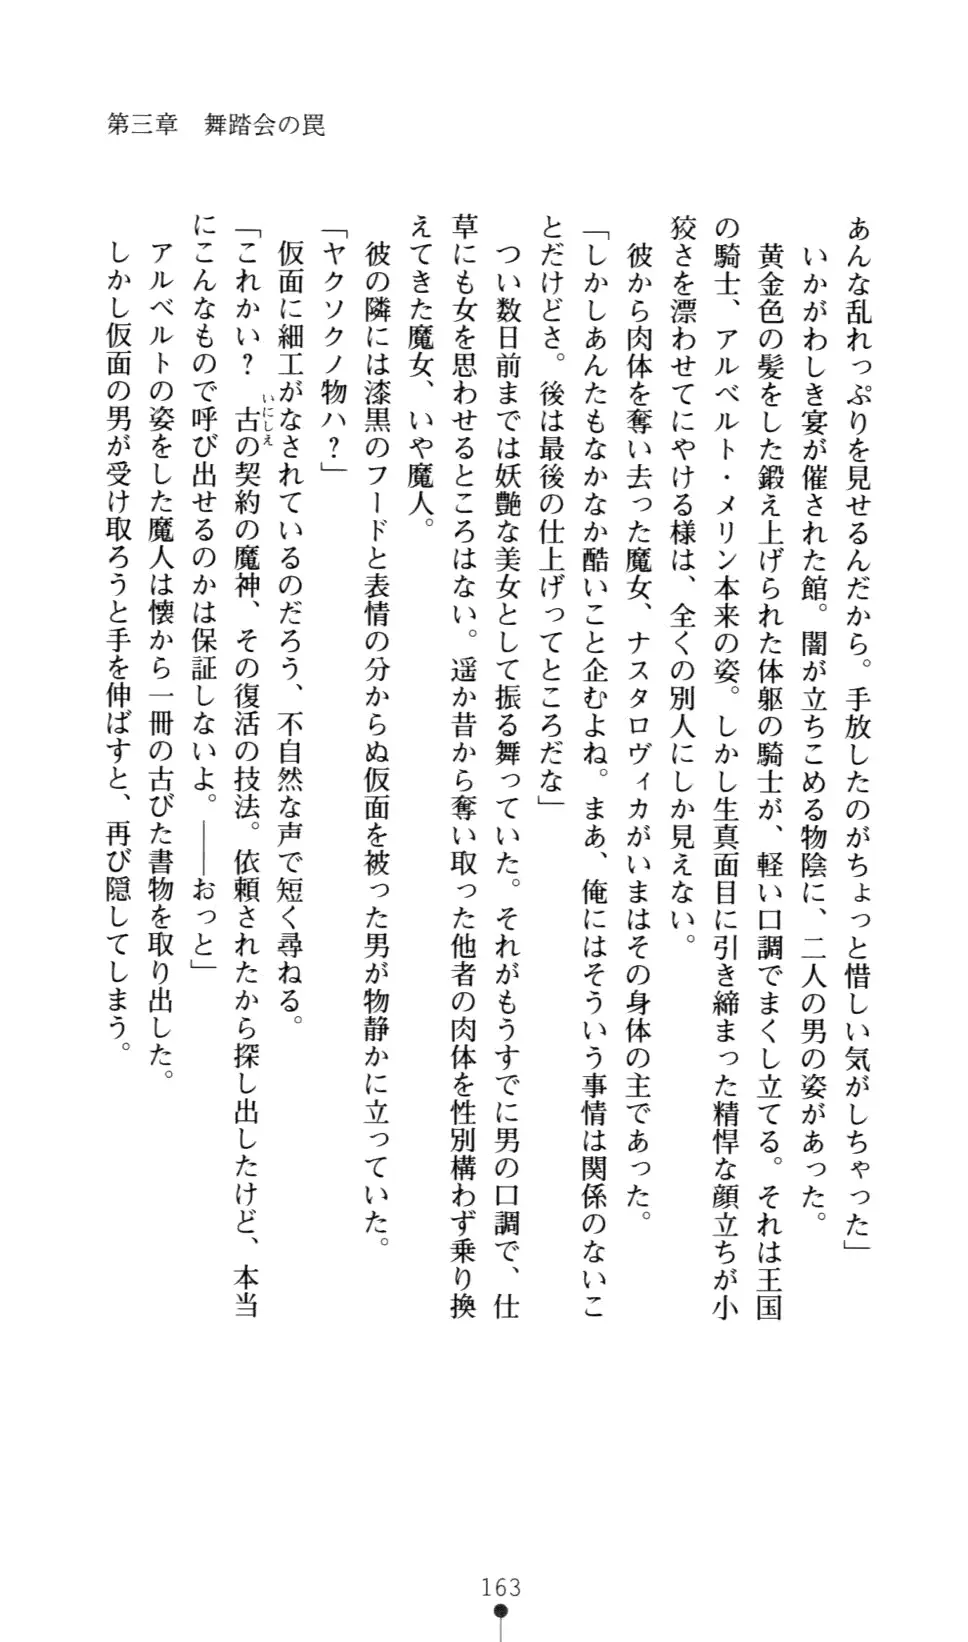 第三章　舞踏会の罠
あんな乱れっぷりを見せるんだから。手放したのがちょっと惜しい気がしちゃった」
　いかがわしき宴が催された館。闇が立ちこめる物陰に、二人の男の姿があった。
　黄金色の髪をした鍛え上げられた体躯の騎士が、軽い口調でまくし立てる。それは王国
の騎士、アルベルト・メリン本来の姿。しかし生真面目に引き締まった精悍な顔立ちが小
狡さを漂わせてにやける様は、全くの別人にしか見えない。
　彼から肉体を奪い去った魔女、ナスタロヴィカがいまはその身体の主であった。
「しかしあんたもなかなか酷いこと企むよね。まあ、俺にはそういう事情は関係のないこ
とだけどさ。後は最後の仕上げってところだな」
　つい数日前までは妖艶な美女として振る舞っていた。それがもうすでに男の口調で、仕
草にも女を思わせるところはない。遥か昔から奪い取った他者の肉体を性別構わず乗り換
えてきた魔女、いや魔人。
　彼の隣には漆黒のフードと表情の分からぬ仮面を被った男が物静かに立っていた。
「ヤクソクノ物ハ？」
　仮面に細工がなされているのだろう、不自然な声で短く尋ねる。
「これかい？　古の契約の魔神、その復活の技法。依頼されたから探し出したけど、本当
いにしえ
にこんなもので呼び出せるのかは保証しないよ。――おっと」
　アルベルトの姿をした魔人は懐から一冊の古びた書物を取り出した。
　しかし仮面の男が受け取ろうと手を伸ばすと、再び隠してしまう。
163